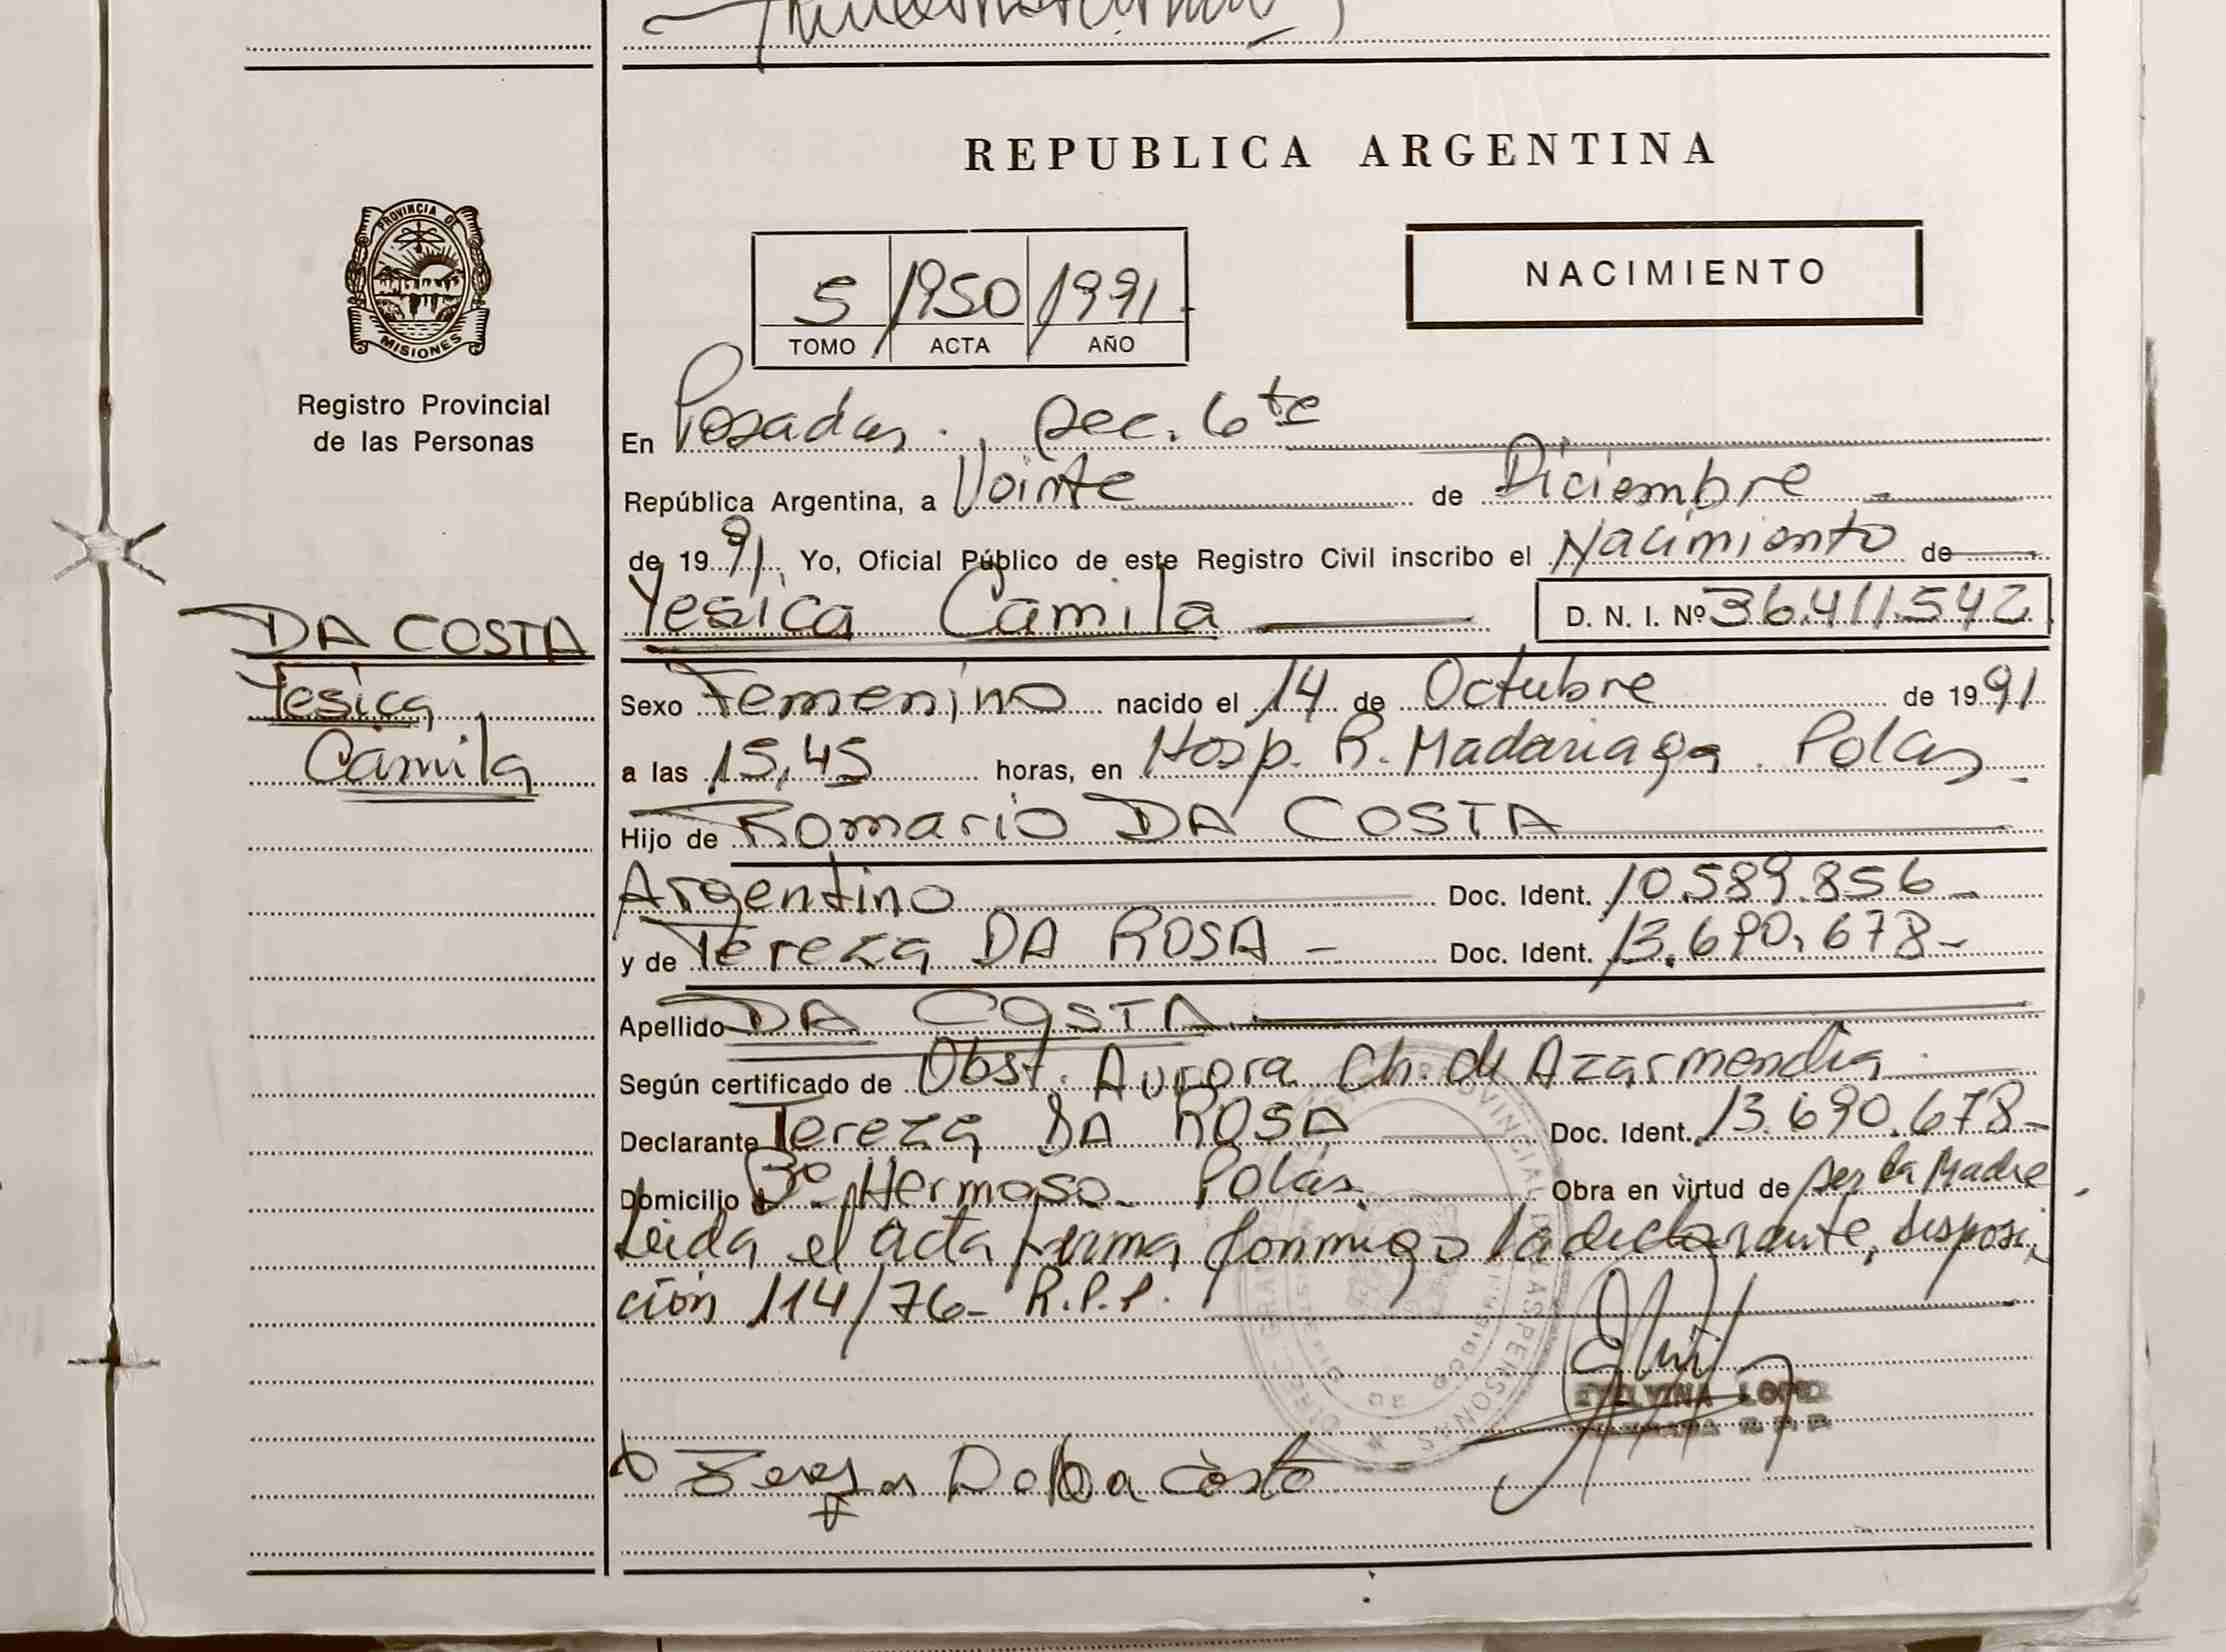 REPUBLICA ARGENTINA
PROVINCIA DE
MISIONES
Registro Provincial
de las Personas
5 1950 1991
TOMO ACTA AÑO
NACIMIENTO
En Posadas., Sec. 6ta
República Argentina, a Veinte de Diciembre
de 1991, Yo, Oficial Público de este Registro Civil inscribo el Nacimiento de
Yesica Camila D. N. I. Nº 36.411.542
DA COSTA
Yesica
Camila
Sexo Femenino nacido el 14 de Octubre de 1991
a las 15,45 horas, en Hosp. R. Madariaga. Pdas
Hijo de Romario DA COSTA
Argentino Doc. Ident. 10.589.856-
y de Tereza DA ROSA - Doc. Ident. 13.690.678-
Apellido DA COSTA.
Según certificado de Obst. Aurora Ch. de Azarmendia.
Declarante Tereza DA ROSA Doc. Ident. 13.690.678-
Domicilio Bº Hermoso. Pdas Obra en virtud de ser la Madre
Leida el acta firma conmigo la declarante, disposi-
ción 114/76- R.P.P.
LOPEZ